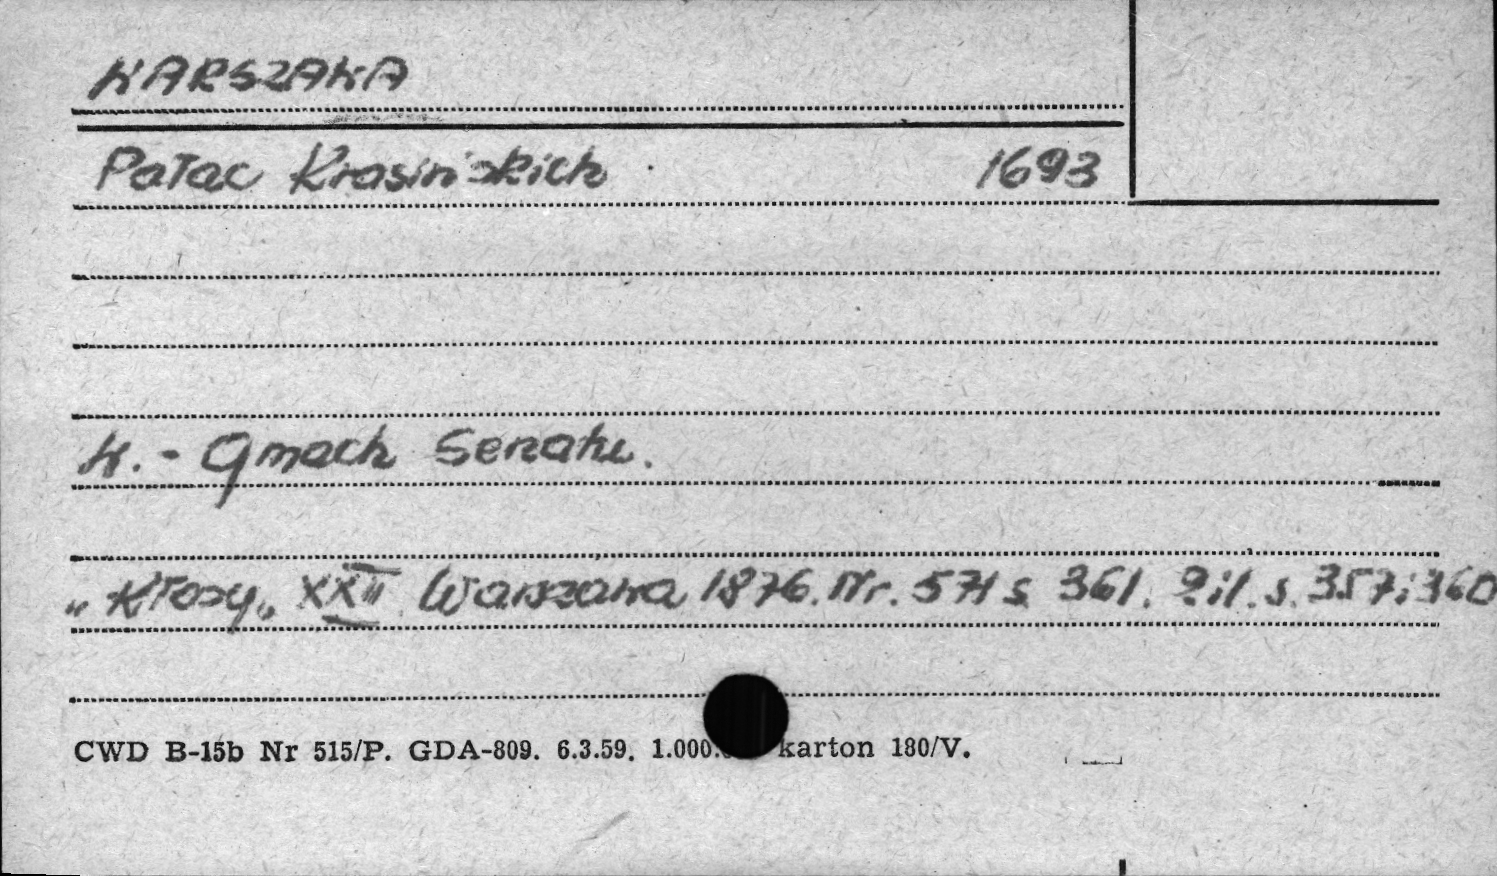 WARSZAWA
Pałac Krasińskich 1693
W. - Gmach Senatu.
„Kłosy„ XXII Warszawa 1876. Nr. 571 s 361. 2 il. s. 357 i 360
CWD B-15b Nr 515/P. GDA-809. 6.3.59. 1.000. karton 180/V.